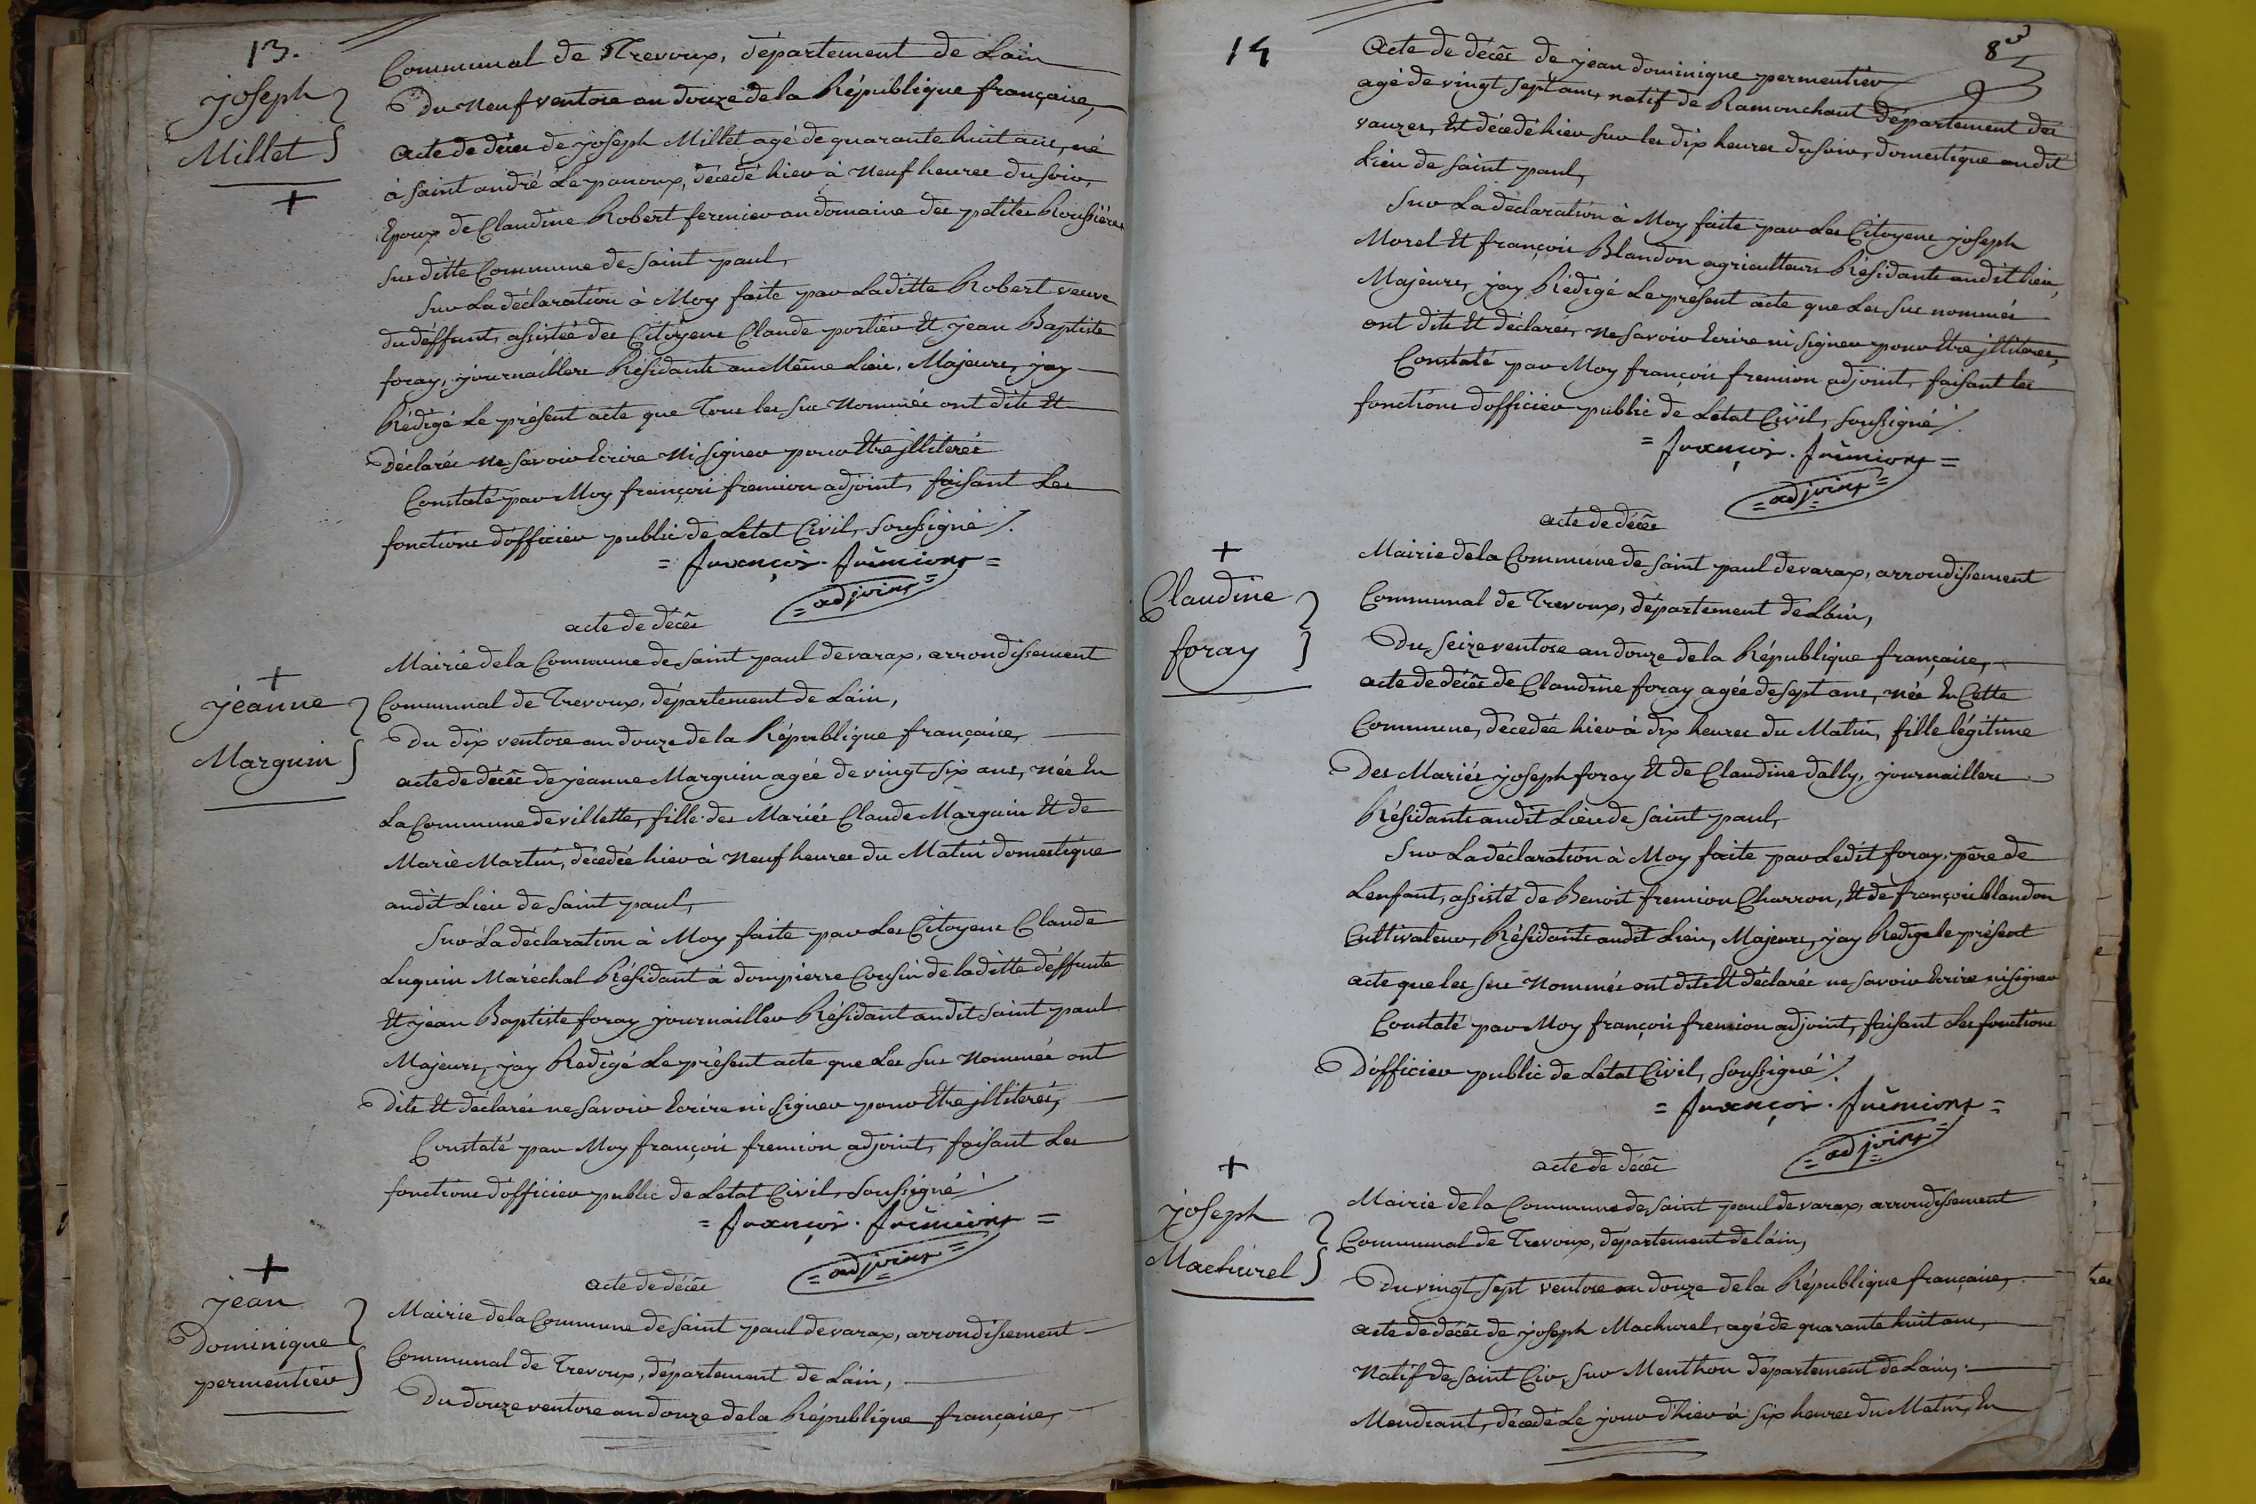 13.
joseph
Millet
Communal de Trevoux, département de Lain
Du Neuf ventose an douze de la République française,
acte de décès de joseph Millet agé de quarante huit ans, né
à saint andré Le panoux, décédé hier à Neuf heures du soir,
Epoux de Claudine Robert fermier au domaine des petites Roussières
sus ditte Commune de saint paul,
Sur La déclaration à Moy faite par Laditte Robert veuve
du déffunt, assistée des Citoyens Claude portier Et jean Baptiste
foray, journailliers Résidants au Même Lieu, Majeurs, jay
Rédigé Le présent acte que Tous les sus Nommés ont dits Et
Déclarés Ne savoir Ecrire Ni signer pour Etre jlliterés
Constaté par Moy françois fremion adjoint, faisant Les
fonctions d'officier public de Letat Civil, soussigné /.
= françois . fremiont =
= adjoint =
acte de décès
jeanne
Marguin
Mairie de la Commune de saint paul de varax, arrondissement
Communal de Trevoux, département de Lain,
Du dix ventose an douze de la République française,
acte de décès de jeanne Marguin agée de vingt six ans, née En
La Commune de villette, fille des Mariés Claude Marguin Et de
Marie Martin, décédée hier à Neuf heures du Matin domestique
audit Lieu de saint paul,
Sur La déclaration à Moy faite par Les Citoyens Claude
Luguin Maréchal Résidant à dompierre Cousin de laditte déffunte
Et jean Baptiste foray journaillier Résidant audit saint paul
Majeurs, jay Redigé Le présent acte que Les sus Nommés ont
Dits Et déclarés ne savoir Ecrire ni signer pour Etre jlliterés,
Constaté par Moy françois fremion adjoint, faisant Les
fonctions d'officier public de Letat Civil, soussigné /
= françois . fremiont =
= adjoint =
acte de décès
jean
Dominique
permentier
Mairie de la Commune de saint paul de varax, arrondissement
Communal de Trevoux, département de Lain,
Du douze ventose an douze de la République française,
14
8e
Acte de décès de jean dominique permentier
agé de vingt sept ans, natif de Ramonchant département des
vauzes, Est décédé hier sur les dix heures du soir, domestique audit
Lieu de saint paul,
Sur La déclaration à Moy faite par Les Citoyens joseph
Morel Et françois Blandon agriculteurs Résidants audit Lieu,
Majeurs, jay Rédigé Le present acte que Les sus nommés
ont dits Et déclarés, Ne savoir Ecrire ni signer pour Etre jlliterés,
Constaté par Moy françois fremion adjoint, faisant les
fonctions d'officier public de Letat Civil, soussigné /.
= françois . fremiont =
= adjoint =
acte de décès
Claudine
foray
Mairie de la Commune de saint paul de varax, arrondissement
Communal de Trevoux, département de Lain,
Du seize ventose an douze de la République française,
acte de décès de Claudine foray agée de sept ans, née En Cette
Commune, décédée hier à dix heures du Matin, fille légitime
Des Mariés joseph foray Et de Claudine dally, journailliers
Résidants audit Lieu de saint paul,
Sur La déclaration à Moy faite par Ledit foray, père de
Lenfant, assisté de Benoit fremion Charron, Et de françois blandon
Cultivateur, Résidants audit Lieu, Majeurs, jay Redigé le présent
acte que les sus Nommés ont dits Et déclarés ne savoir Ecrire ni signer
Constaté par Moy françois fremion adjoint, faisant Les fonctions
D'officier public de Letat Civil, soussigné /.
= françois . fremiont =
= adjoint =
acte de décès
joseph
Machurel
Mairie de la Commune de saint paul de varax, arrondissement
Communal de Trevoux, département de lain,
Du vingt sept ventose an douze de la République française,
acte de décès de joseph Machurel, agé de quarante huit ans,
Natif de saint Cir, sur Menthon département de Lain,
Mendiant, décédé Le jour d'hier à six heures du Matin, En